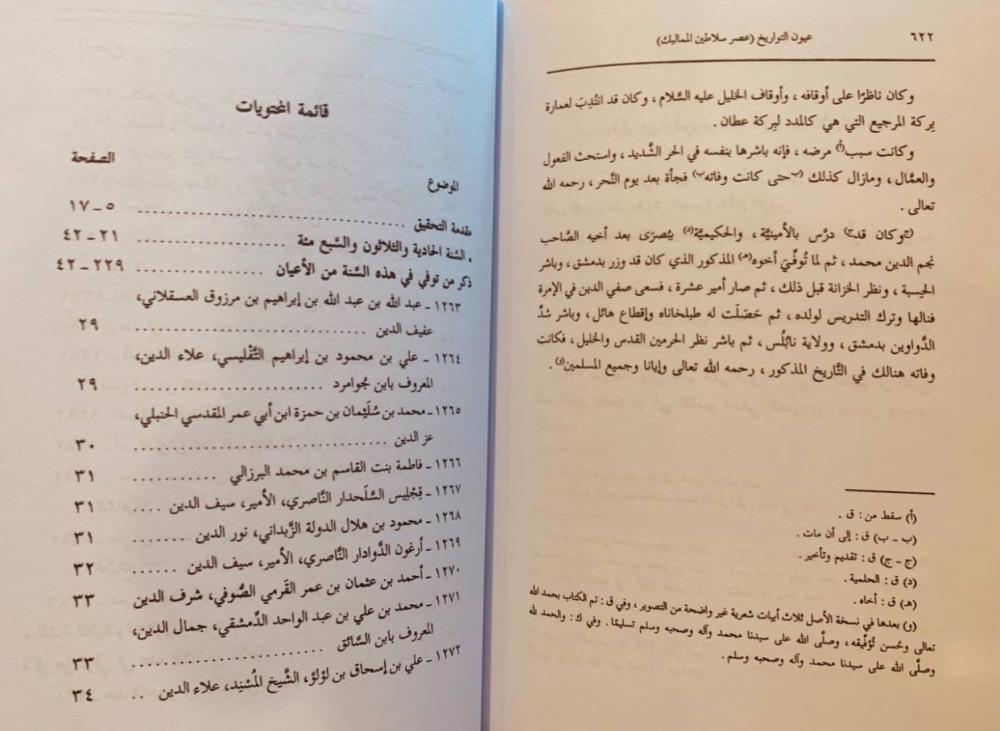 ٦٢٢
عيون التواريخ (عصر سلاطين المماليك)
وكان ناظرًا على أوقافه ، وأوقاف الخليل عليه السَّلام ، وكان قد انتُدِبَ لعمارة
بركة المرجيع التي هي كالمدد لبِركة عطان .
وكانت سبب(أ) مرضه ، فإنه باشرها بنفسه في الحر الشَّديد ، واستحث الفعول
والعمَّال ، ومازال كذلك (ب حتى كانت وفاته ب) فجأة بعد يوم النَّحر ، رحمه الله
تعالى .
(ج وكان قد ج) درَّس بالأمينيَّة ، والحكيميَّة (د) ببُصرَى بعد أخيه الصَّاحب
نجم الدين محمد ، ثم لما تُوفِّيَ أخوه (هـ) المذكور الذي كان قد وزر بدمشق ، وباشر
الحِسبة ، ونظر الخزانة قبل ذلك ، ثم صار أمير عشرة ، فسعى صفي الدين في الإمرة
فنالها وترك التدريس لولده ، ثم حَصَلَت له طبلخاناه وإقطاع هائل ، وباشر شدَّ
الدَّواوين بدمشق ، وولاية نابُلُس ، ثم باشر نظر الحرمين القدس والخليل ، فكانت
وفاته هنالك في التَّاريخ المذكور ، رحمه الله تعالى وإيانا وجميع المسلمين (و) .
(أ) سقط من : ق .
(ب - ب) ق : إلى أن مات .
(ج - ج) ق : تقديم وتأخير .
(د) ق : الحلمية .
(هـ) ق : أخاه .
(و) بعدها في نسخة الأصل ثلاث أبيات شعرية غير واضحة من التصوير ، وفي ق : تم الكتاب بحمد الله
تعالى وحُسن تُوْفِيقه ، وصلَّى الله على سيدنا محمد وآله وصحبه وسلم تسليمًا . وفي ك : والحمد لله
وصلَّى الله على سيدنا محمد وآله وصحبه وسلم .
قائمة المحتويات
الموضوع الصفحة
مقدمة التحقيق ................ ٥ - ١٧
السَّنة الحادية والثلاثون والسَّبع مئة ................ ٢١ - ٤٢
ذكر من توفي في هذه السَّنة من الأعيان ................ ٢٢٩ - ٤٢
١٢٦٣ - عبد الله بن عبد الله بن إبراهيم بن مرزوق العسقلاني،
عفيف الدين ................ ٢٩
١٢٦٤ - علي بن محمود بن إبراهيم التَّفْليسي، علاء الدين،
المعروف بابن جُوامرد ................ ٢٩
١٢٦٥ - محمد بن سُلَيْمان بن حمزة ابن أبي عمر المقدسي الحنبلي،
عز الدين ................ ٣٠
١٢٦٦ - فاطمة بنت القاسم بن محمد البرزالي ................ ٣١
١٢٦٧ - قِجْلِيس السَّلَحدار النَّاصري، الأمير، سيف الدين ................ ٣١
١٢٦٨ - محمود بن هلال الدولة الزَّبداني، نور الدين ................ ٣١
١٢٦٩ - أرغون الدَّوادار النَّاصري، الأمير، سيف الدين ................ ٣٢
١٢٧٠ - أحمد بن عثمان بن عمر القَرمي الصُّوفي، شرف الدين ٣٣
١٢٧١ - محمد بن علي بن عبد الواحد الدَّمشقي، جمال الدين،
المعروف بابن السَّائق ................ ٣٣
١٢٧٢ - علي بن إسحاق بن لؤلؤ، الشَّيخ المُسْنِد، علاء الدين .. ٣٤